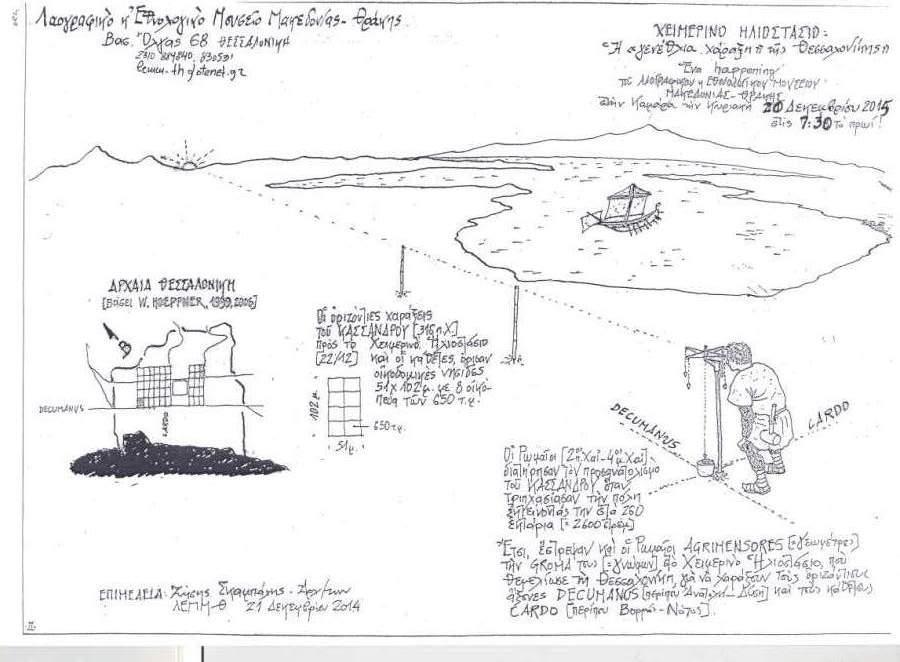 Λαογραφικό κ' Εθνολογικό Μουσείο Μακεδονίας - Θράκης.
Βασ. Όλγας 68 ΘΕΣΣΑΛΟΝΙΚΗ
2310
ΧΕΙΜΕΡΙΝΟ ΗΛΙΟΣΤΑΣΙΟ:
Ἡ γενέθλια χάραξη τῆς Θεσσαλονίκης
Ἕνα happening
τοῦ ΛΑΟΓΡΑΦΙΚΟΥ κ ΕΘΝΟΛΟΓΙΚΟΥ ΜΟΥΣΕΙΟΥ
ΜΑΚΕΔΟΝΙΑΣ - ΘΡΑΚΗΣ
στὴν Καμάρα τὴν Κυριακὴ 20 Δεκεμβρίου 2015
στὶς 7:30 τὸ πρωί!
ΑΡΧΑΙΑ ΘΕΣΣΑΛΟΝΙΚΗ
[βάσει W. HOEPFNER, 1999, 2006]
Β
DECUMANUS
CARDO
Οἱ ὁριζόντιες χαράξεις
τοῦ ΚΑΣΣΑΝΔΡΟΥ [315 π.Χ]
πρὸς τὸ Χειμερινὸ Ἡλιοστάσιο
[22/12] καὶ οἱ κάθετες, ὅρισαν
οἰκοδομικὲς νησίδες
51 x 102 μ. με 8 οἰκό-
πεδα τῶν 650 τ.μ.
102 μ.
650 τ.μ.
51 μ.
DECUMANUS
CARDO
Οἱ Ρωμαῖοι [2ος π.Χαἰ - 4ος μ.Χαἰ]
διατήρησαν τὸν προσανατολισμὸ
τοῦ ΚΑΣΣΑΝΔΡΟΥ ὅταν
τριπλασίασαν τὴν πόλη
ἐκτείνοντάς την στὰ 260
ἑκτάρια [= 2600 στρέμ]
Ἔτσι, ἔστρεψαν καὶ οἱ Ρωμαῖοι AGRIMENSORES [= Γεωμέτρες]
τὴν GROMA τους [= γνώμων] στὸ Χειμερινὸ Ἡλιοστάσιο, ποὺ
θεμελίωσε τὴ Θεσσαλονίκη, γιὰ νὰ χαράξουν τοὺς ὁριζόντιους
ἄξονες DECUMANUS [περίπου Ἀνατολή - Δύση] καὶ τοὺς κάθετους
CARDO [περίπου Βορρᾶς - Νότος].
ΕΠΙΜΕΛΕΙΑ:
ΛΕΜΜ-Θ 21 Δεκεμβρίου 2014